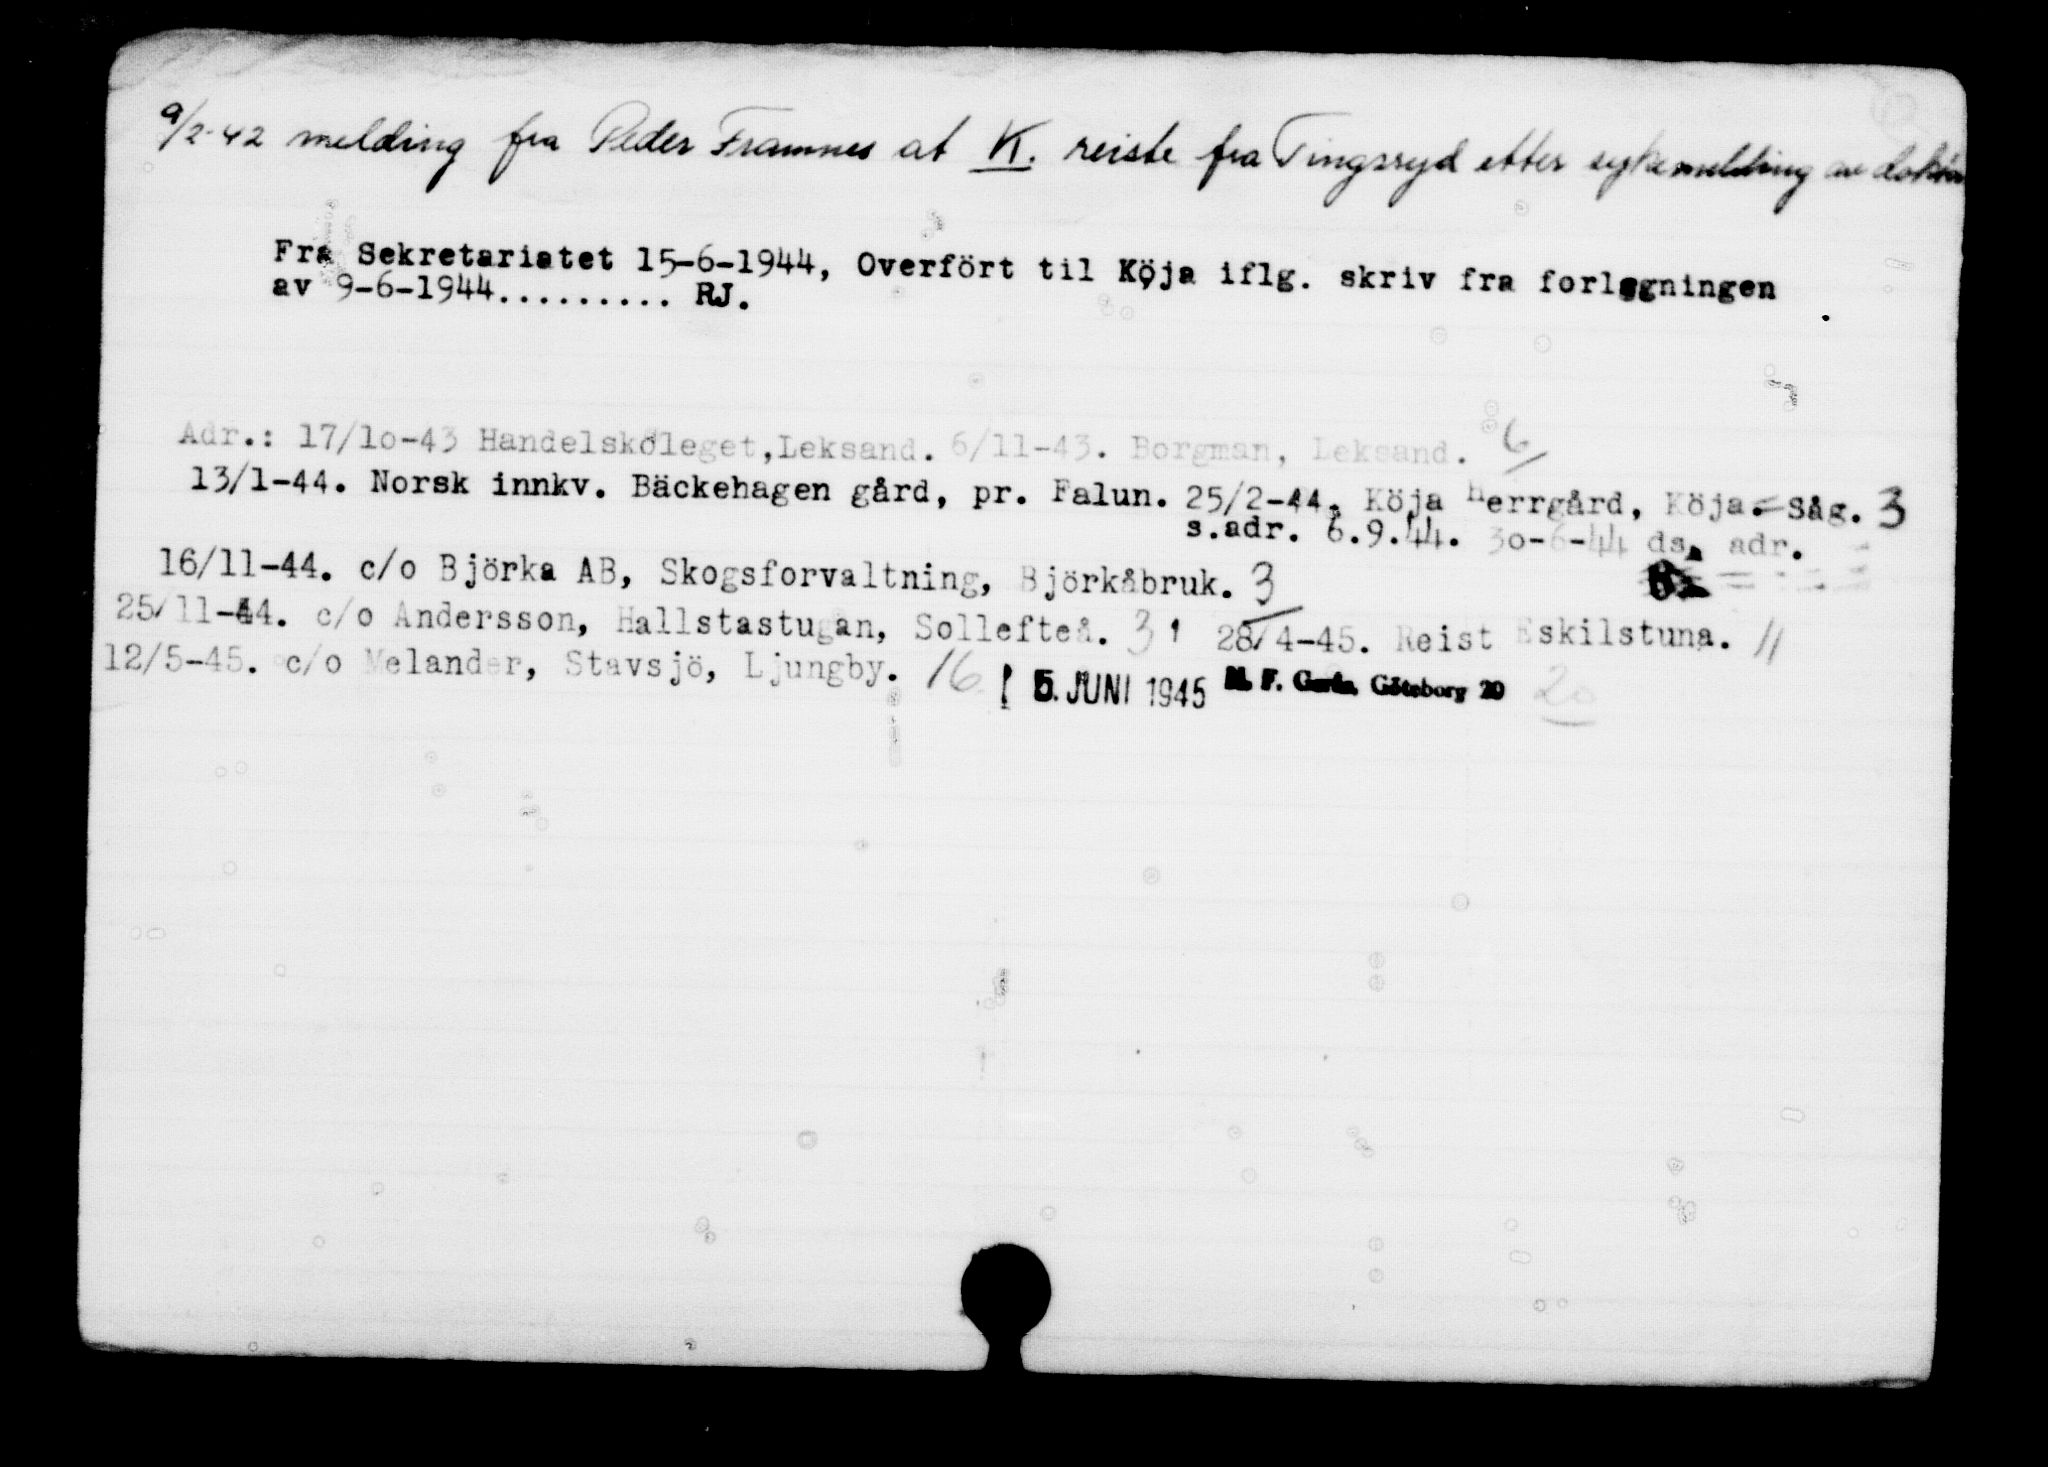 9/2-42 melding fra Peder Framnes at K. reiste fra Tingsryd etter sykemelding av doktor
Fra Sekretariatet 15-6-1944, Overfört til Köja iflg. skriv fra forlegningen
av 9-6-1944......... RJ.
Adr.: 17/10-43 Handelsköleget, Leksand. 6/11-43. Borgman, Leksand. 6
13/1-44. Norsk innkv. Bäckehagen gård, pr. Falun. 25/2-44. Köja Herrgård, Köja. Såg. 3
s.adr. 6.9.44. 30-6-44 ds. adr.
16/11-44. c/o Björka AB, Skogsforvaltning, Björkåbruk. 3
25/11-44. c/o Andersson, Hallstastugan, Sollefteå. 3 28/4-45. Reist Eskilstuna. 11
12/5-45. c/o Melander, Stavsjö, Ljungby. 16 5. JUNI 1945 M. F. Göteborg 20 20